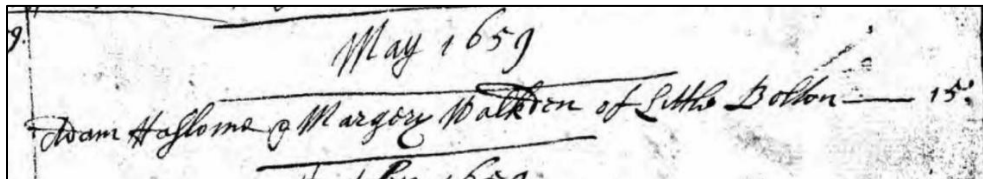 9.
May 1659
Adam Haslome & Margery Walkden of Little Bolton — 15:
1659